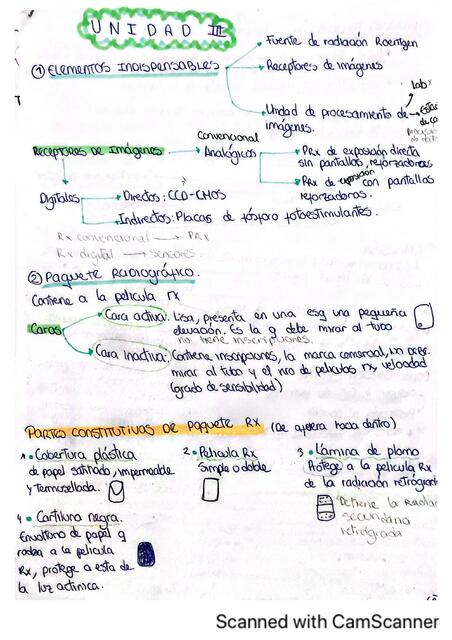 UNIDAD III
Fuente de radiación Roentgen
① ELEMENTOS INDISPENSABLES
Receptores de imágenes
Lab
Unidad de procesamiento de imágenes.
convencional
RECEPTORES DE IMÁGENES
Analógicos
PRx de exposición directa
sin pantallas, reforzadoras
PRx de exposición con pantallas
reforzadoras.
Digitales
Directos: CCD-CMOS
Indirectos: Placas de fósforo fotoestimulantes.
Rx convencional → PRX
Rx digital → sensores.
② PAQUETE RADIOGRÁFICO.
Contiene a la pelicula rx
Caras
Cara activa: Lisa, presenta en una esq una pequeña
elevación. Es la q debe mirar al tubo
no tiene inscripciones.
Cara Inactiva: Contiene inscripciones, la marca comercial, no debe
mirar al tubo y el nro de peliculas rx, velocidad
(grado de sensibilidad)
PARTES CONSTITUTIVAS DE PAQUETE RX (De afuera hacia dentro)
1 • Cobertura plástica
de papel satinado, impermeable
y termosellada.
2 • Pelicula Rx
Simple o doble
3 • Lámina de plomo
Protege a la pelicula Rx
de la radiación retrógrada
Detiene la
secundaria
retrógrada
4 • Cartulina negra.
Envoltorio de papel q
rodea a la pelicula
Rx, protege a esta de
la luz actinica.
Scanned with CamScanner